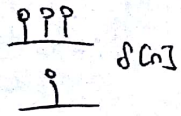 δ[n]